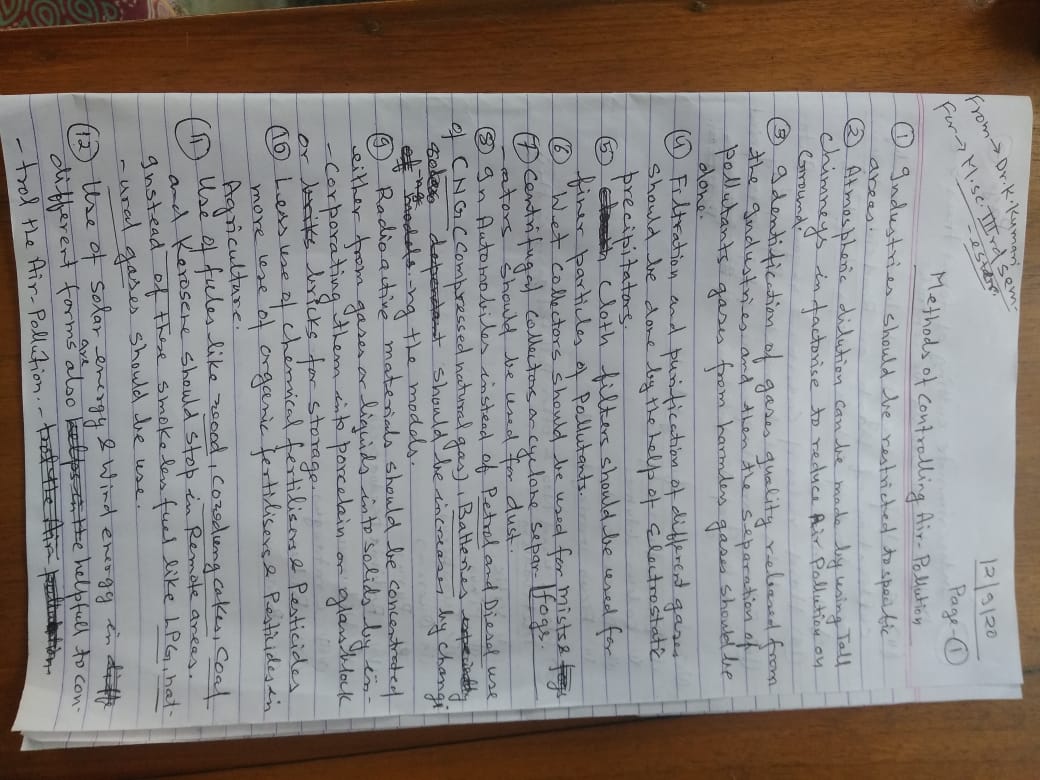 12/9/20
Page-①
From → Dr. K. Kumari
For → M.Sc. IIIrd Sem-
-ester
Methods of Controlling Air-Pollution
① Industries should be restricted to specific
areas.
② Atmospheric dilution can be made by using Tall
chimneys in factorice to reduce Air Pollution on
Ground.
③ Identification of gases quality released from
the industries and then the separation of
pollutants gases from harmless gases should be
done.
④ Filtration and purification of different gases
should be done by the help of Electrostatic
precipitators.
⑤ Cloth filters should be used for
finer particles of Pollutants.
⑥ Wet collectors should be used for mists &
fogs.
⑦ Centrifugal collectors or cyclone separ-
-ators should be used for dust.
⑧ In Automobiles instead of Petrol and Diesel use
of CNG (Compressed natural gas), Batteries
should be increases by changi
-ng the models.
⑨ Radioactive materials should be concentrated
either from gases or liquids into solids by in-
-corporating them into porcelain or glass block
or bricks for storage.
⑩ Less use of chemical fertilisers & Pesticides
more use of organic fertilisers & Pesticides in
Agriculture.
⑪ Use of fules like wood, Cowdung cakes, Coal
and Kerosene should stop in Remote areas.
Instead of these smokeless fuel like LPG, nat-
-ural gases should be use.
⑫ Use of Solar energy & Wind energy in
different forms are also helpfull to con-
-trol the Air-Pollution.